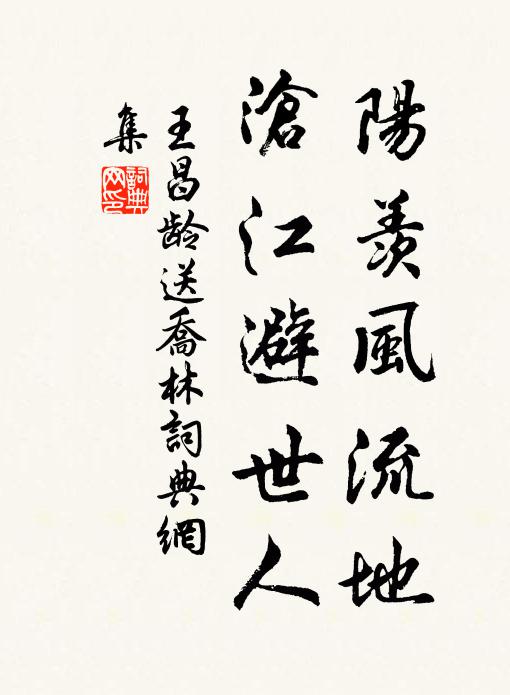 陽羨風流地
滄江避世人
王昌齡送喬林詞典網
集
詞典
网印